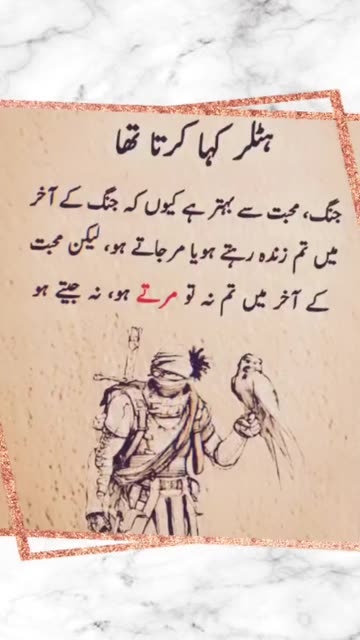 ہٹلر کہا کرتا تھا
جنگ، محبت سے بہتر ہے کیوں کہ جنگ کے آخر
میں تم زندہ رہتے ہو یا مر جاتے ہو، لیکن محبت
کے آخر میں تم نہ تو مرتے ہو، نہ جیتے ہو